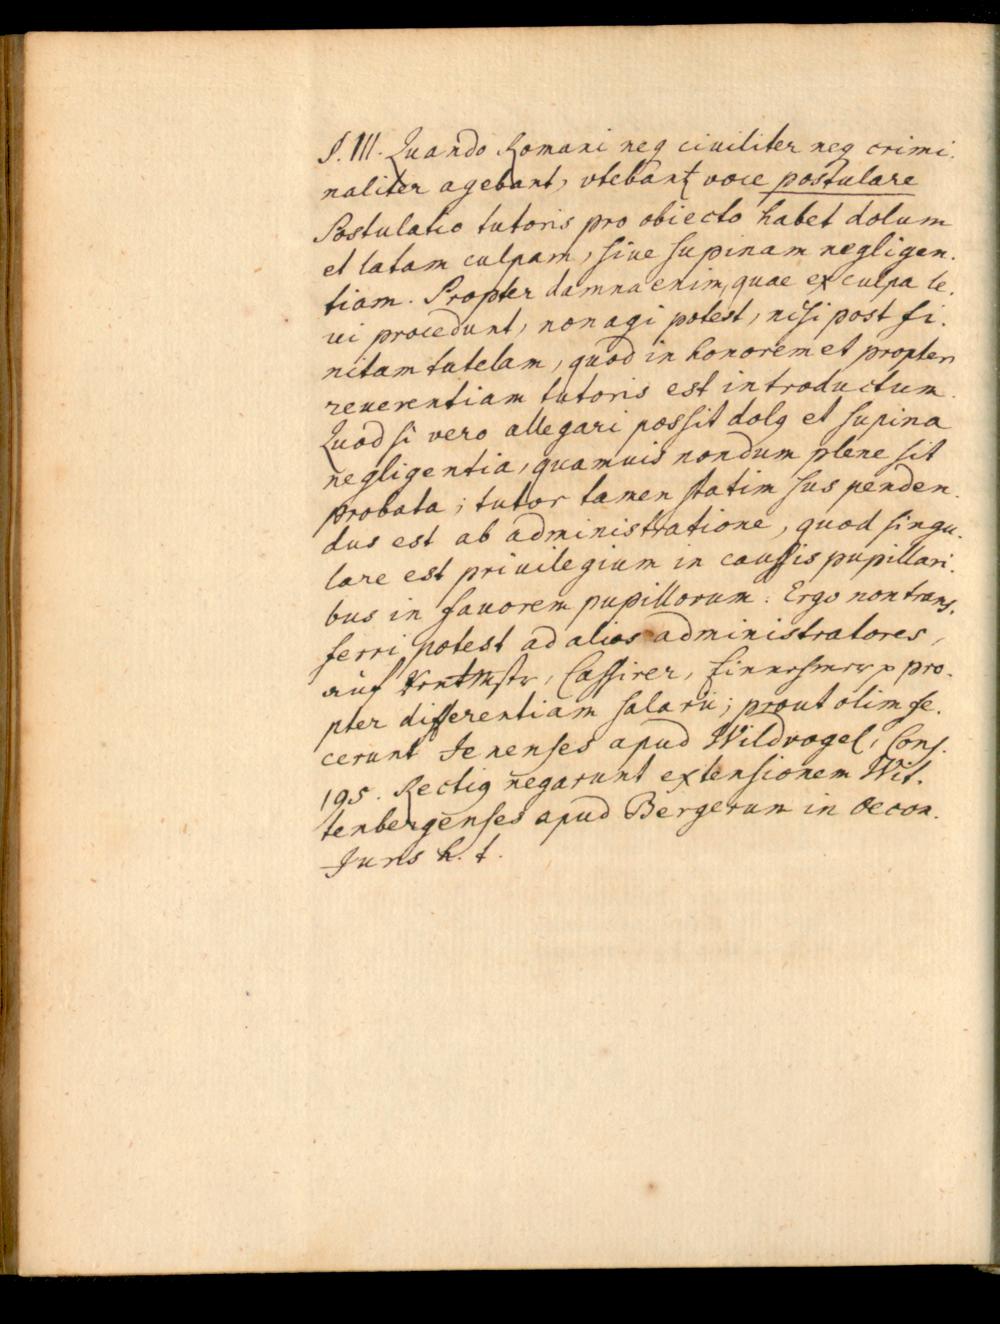 §. III. Quando Romani neq civiliter neq crimi.
naliter agebant, vtebant voce postulare
Postulatio tutoris pro obiecto habet dolum
et latam culpam, sive supinam negligen.
tiam. Propter damna enim, quae ex culpa le.
vi procedunt, non agi potest, nisi post fi.
nitam tutelam, quod in honorem et propter
reuerentiam tutoris est introductum.
Quod si vero allegari possit dolq et supina
negligentia, quamuis nondum plene sit
probata; tutor tamen statim suspenden.
dus est ab administratione, quod singu.
lare est privilegium in caussis pupillari.
bus in favorem pupillorum. Ergo non trans.
ferri potest ad alios administratores,
auf Cassirer, Einnehmer pro.
pter differentiam salarii; prout olim fe.
cerunt Jenenses apud Wildvogel, Cons.
195. Rectiq negarunt extensionem Wit.
tenbergenses apud Bergerum in Oecon.
Juris h. t.